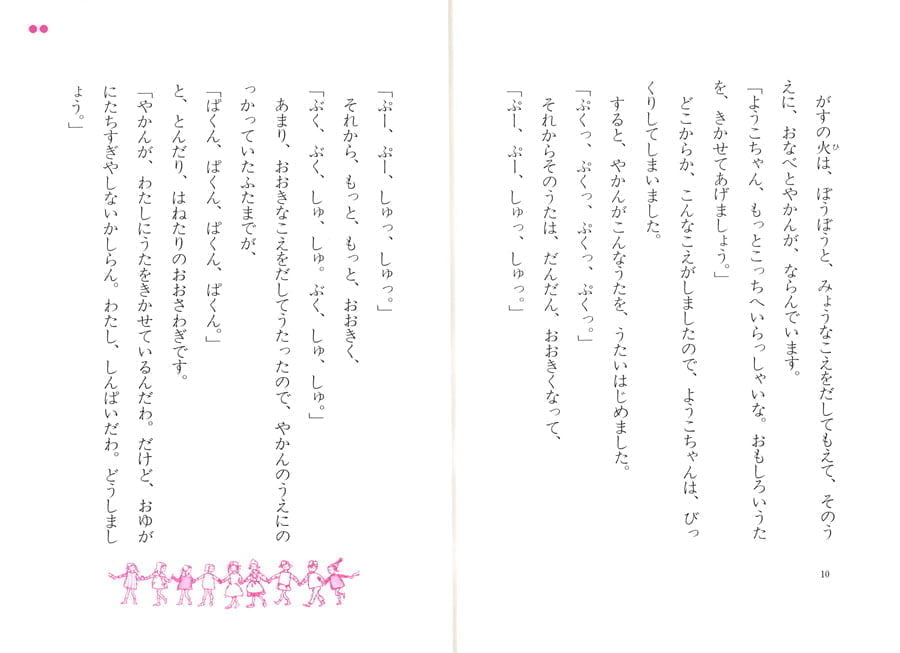 がすの火は、ぼうぼうと、みょうなこえをだしてもえて、そのう
ひ
えに、おなべとやかんが、ならんでいます。
「ようこちゃん、もっとこっちへいらっしゃいな。おもしろいうた
を、きかせてあげましょう。」
どこからか、こんなこえがしましたので、ようこちゃんは、びっ
くりしてしまいました。
すると、やかんがこんなうたを、うたいはじめました。
「ぷくっ、ぷくっ、ぷくっ、ぷくっ。」
それからそのうたは、だんだん、おおきくなって、
「ぷー、ぷー、しゅっ、しゅっ。」
10
「ぷー、ぷー、しゅっ、しゅっ。」
それから、もっと、もっと、おおきく、
「ぶく、ぶく、しゅ、しゅ。ぶく、しゅ、しゅ。」
あまり、おおきなこえをだしてうたったので、やかんのうえにの
っかっていたふたまでが、
「ぱくん、ぱくん、ぱくん、ぱくん。」
と、とんだり、はねたりのおおさわぎです。
「やかんが、わたしにうたをきかせているんだわ。だけど、おゆが
にたちすぎやしないかしらん。わたし、しんぱいだわ。どうしまし
ょう。」